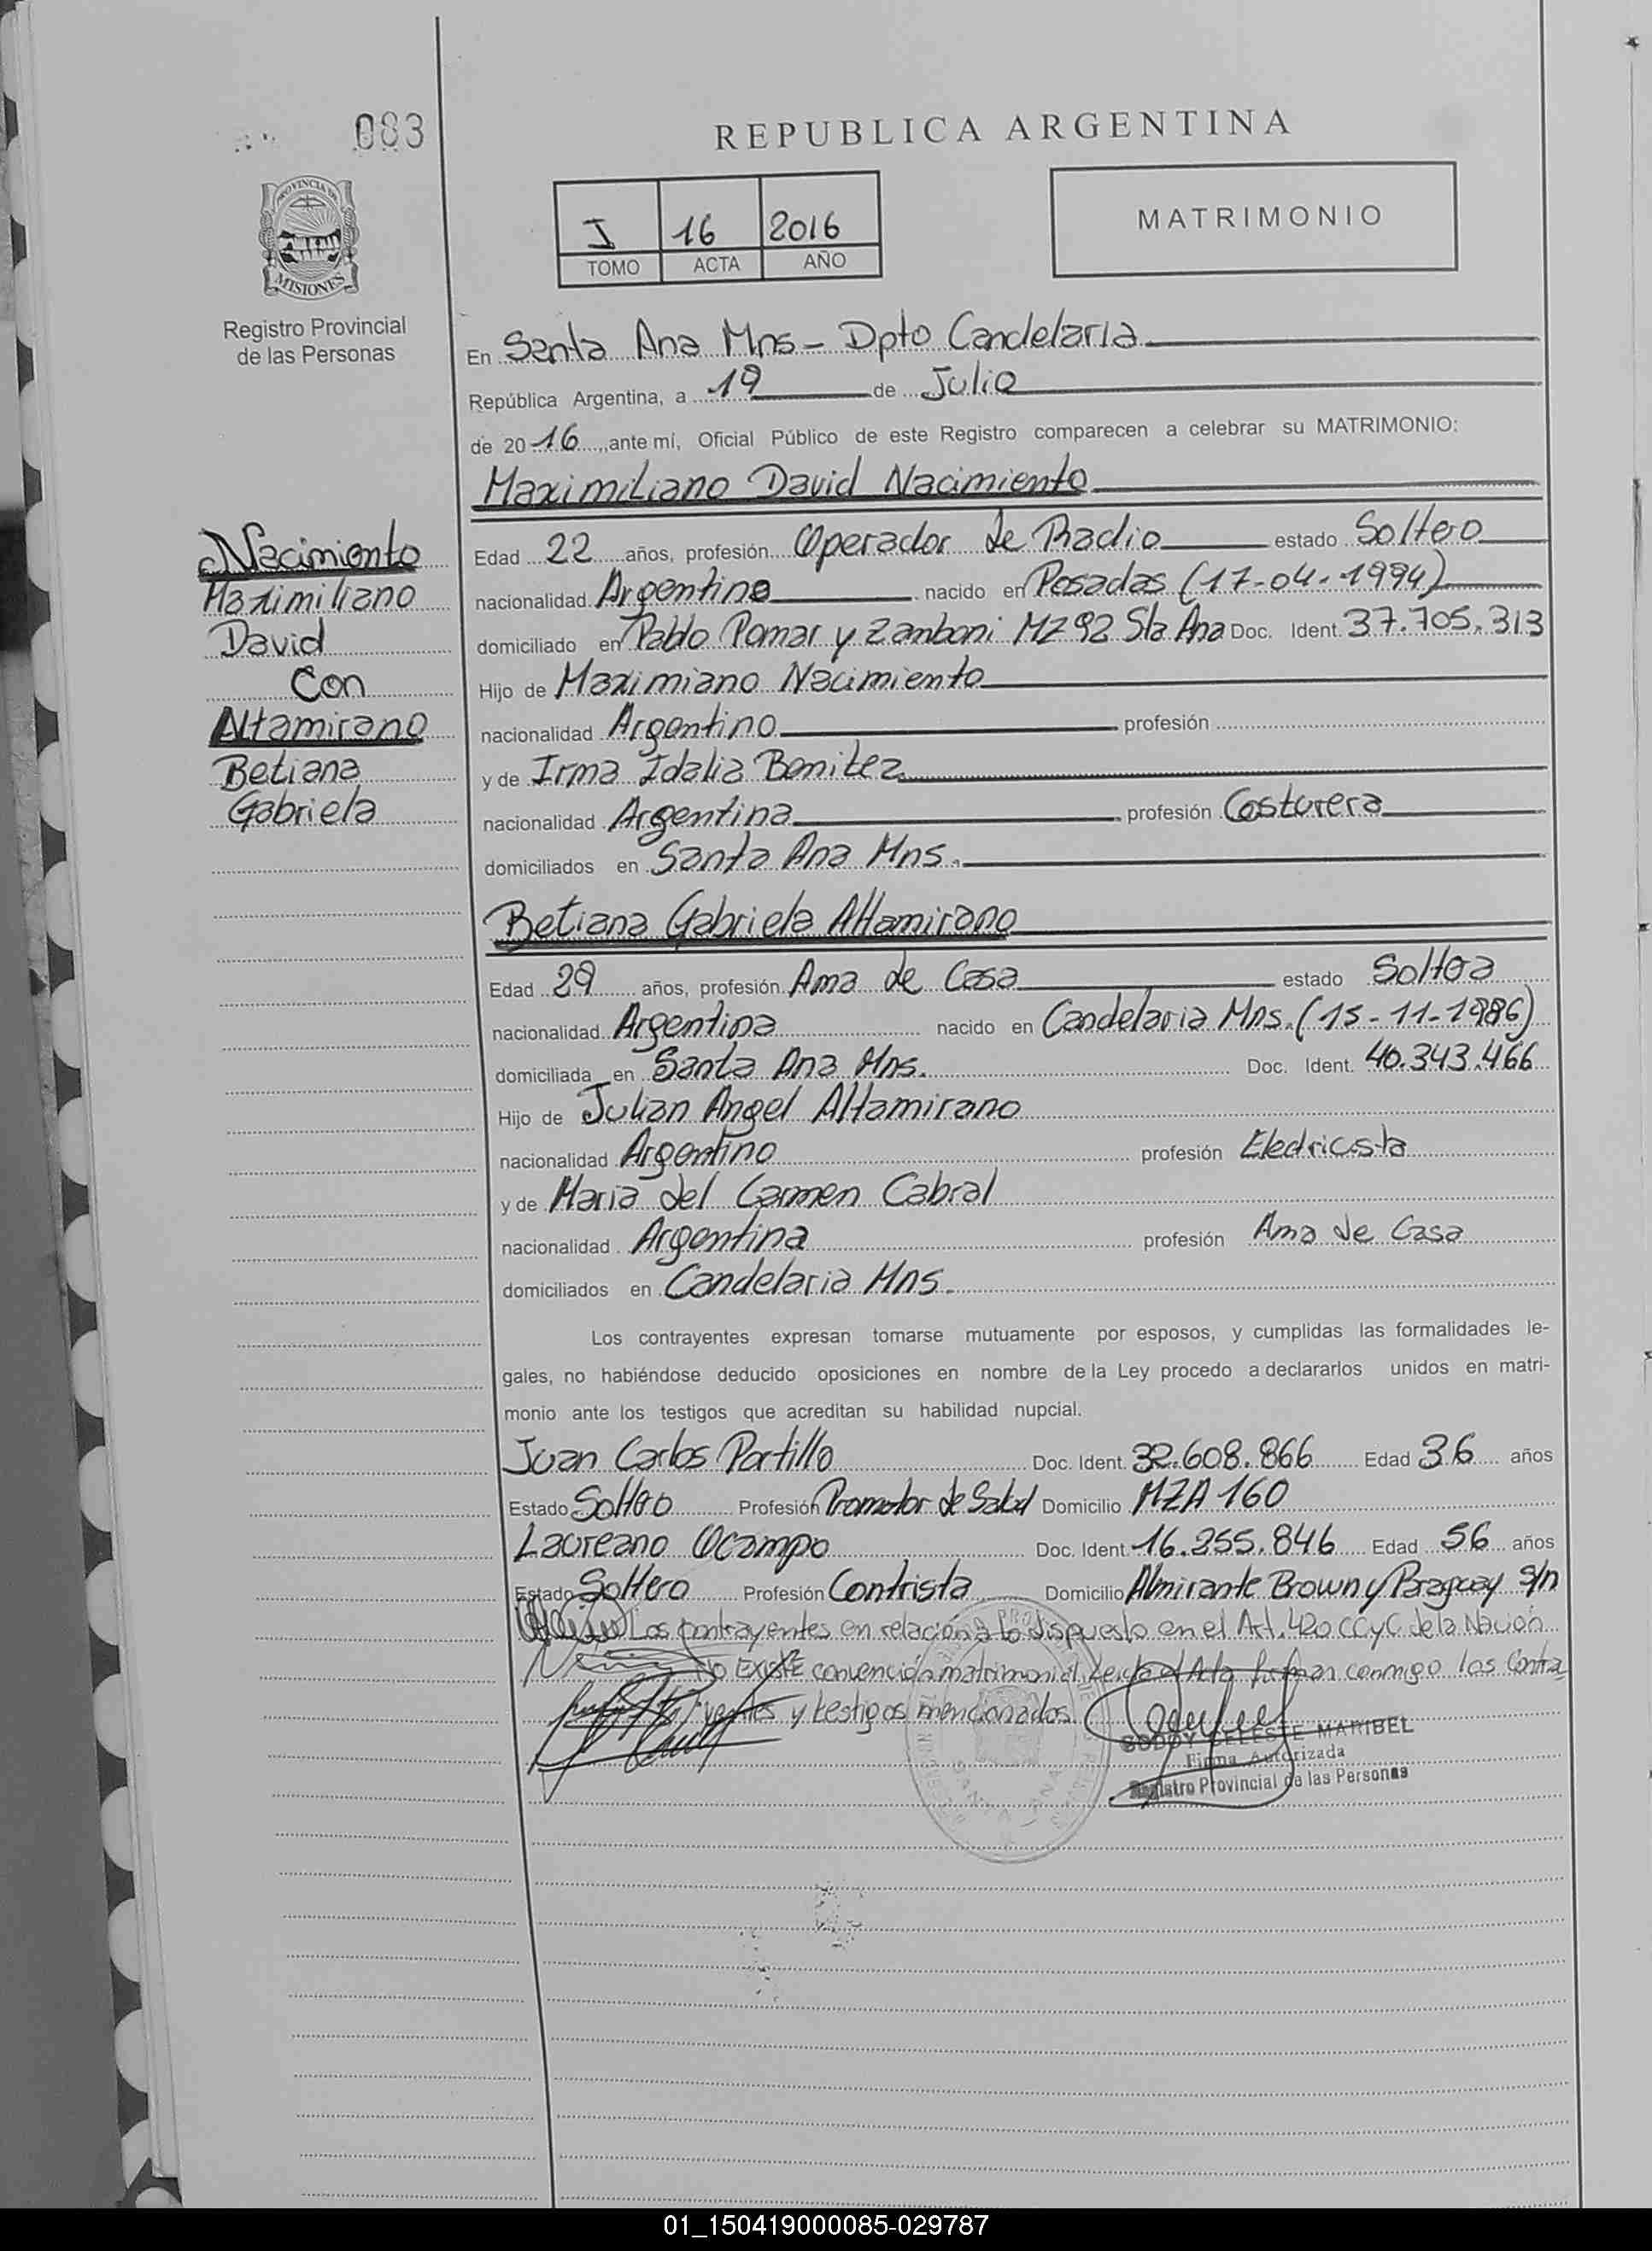 083
REPUBLICA ARGENTINA
PROVINCIA DE
MISIONES
Registro Provincial
de las Personas
I 16 2016
TOMO ACTA AÑO
MATRIMONIO
En Santa Ana Mns - Dpto Candelaria
República Argentina, a 19 de Julio
de 2016, ante mí, Oficial Público de este Registro comparecen a celebrar su MATRIMONIO:
Maximiliano David Nacimiento
Nacimiento
Maximiliano
David
Con
Altamirano
Betiana
Gabriela
Edad 22 años, profesión Operador de Radio estado Soltero
nacionalidad Argentino nacido en Posadas (17-04-1994)
domiciliado en Pablo Pomar y Zamboni MZ 92 Sta Ana Doc. Ident. 37.705.313
Hijo de Maximiano Nacimiento
nacionalidad Argentino profesión
y de Irma Idalia Benitez
nacionalidad Argentina profesión Costurera
domiciliados en Santa Ana Mns.
Betiana Gabriela Altamirano
Edad 29 años, profesión Ama de Casa estado Soltera
nacionalidad Argentina nacido en Candelaria Mns. (15-11-1986)
domiciliada en Santa Ana Mns. Doc. Ident. 40.343.466
Hijo de Julian Angel Altamirano
nacionalidad Argentino profesión Electricista
y de Maria del Carmen Cabral
nacionalidad Argentina profesión Ama de Casa
domiciliados en Candelaria Mns.
Los contrayentes expresan tomarse mutuamente por esposos, y cumplidas las formalidades le-
gales, no habiéndose deducido oposiciones en nombre de la Ley procedo a declararlos unidos en matri-
monio ante los testigos que acreditan su habilidad nupcial.
Juan Carlos Portillo Doc. Ident. 32.608.866 Edad 36 años
Estado Soltero Profesión Promotor de Salud Domicilio MZA 160
Laureano Ocampo Doc. Ident. 16.255.846 Edad 56 años
Estado Soltero Profesión Contrista Domicilio Almirante Brown y Paraguay s/n
Los contrayentes en relación a lo dispuesto en el Art. 420 CCyC de la Nación
NO EXISTE convención matrimonial. Leída el Acta firman conmigo los Contra
yentes y testigos mencionados.
GODOY CELESTE MARIBEL
Firma Autorizada
Registro Provincial de las Personas
SANTA ANA
01_150419000085-029787